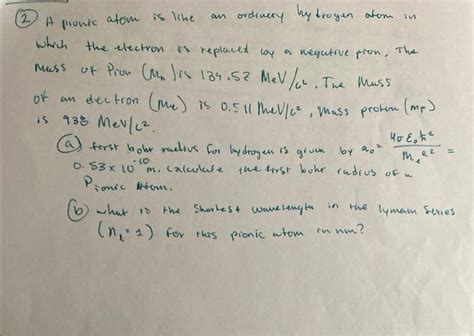 ② A pionic atom is like an ordinary hydrogen atom in
which the electron is replaced by a negative pion. The
mass of Pion (Mπ) is 139.52 MeV/c². The Mass
of an electron (Me) is 0.511 MeV/c², mass proton (mp)
is 938 MeV/c².
ⓐ first bohr radius for hydrogen is given by a₀ = 4π ε₀ ħ² / Mₑ e² =
0.53 x 10⁻¹⁰ m. calculate the first bohr radius of a
Pionic Atom.
ⓑ what is the shortest wavelength in the lymam series
(n₁ = 1) for this pionic atom in nm?